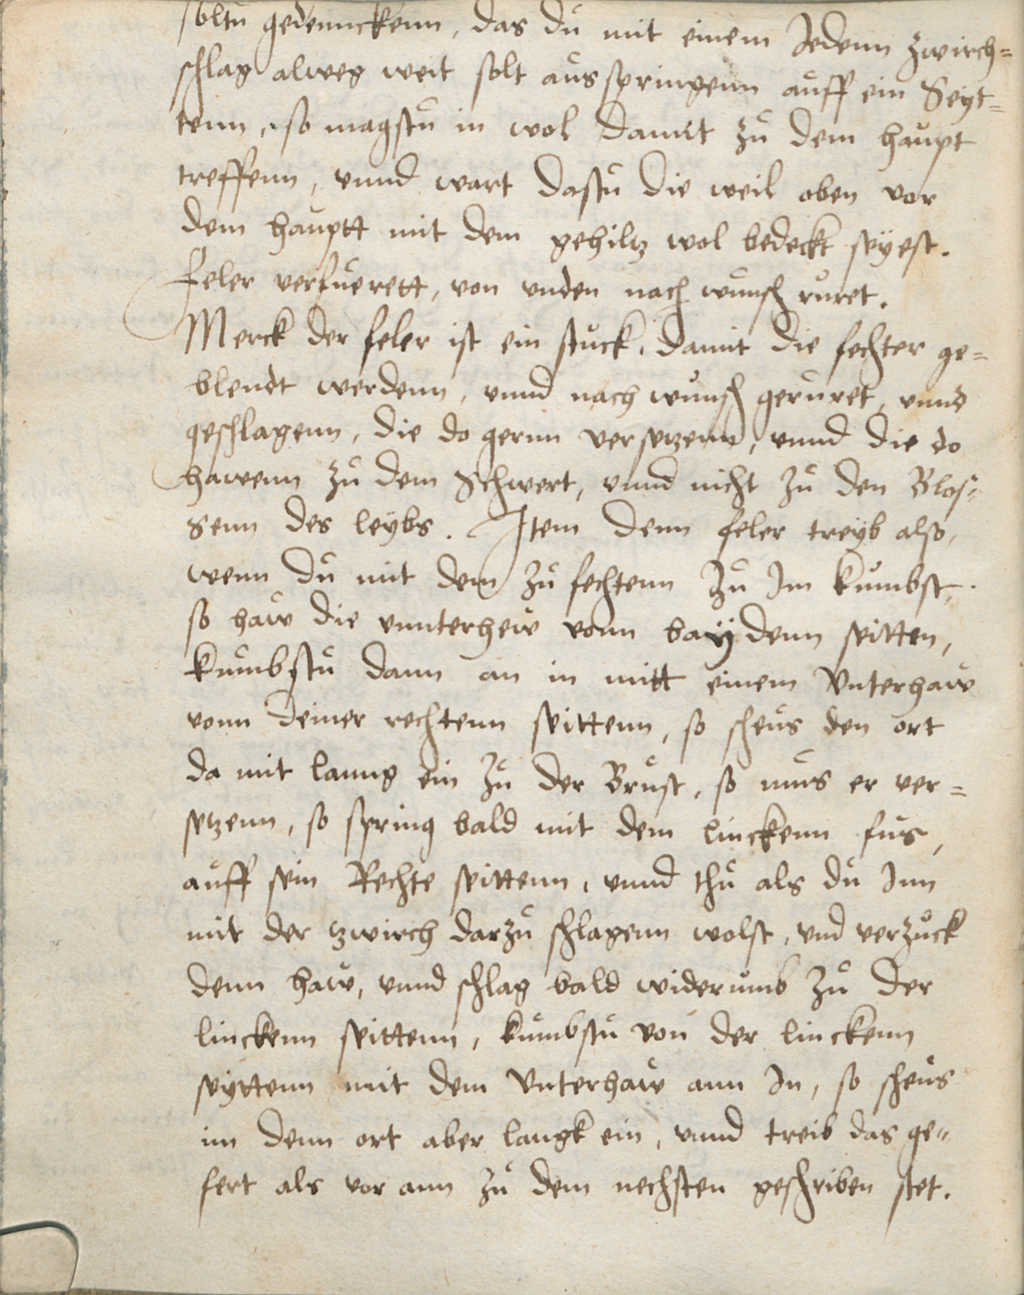 soltu gedennckenn, das dů mit einem Jedenn zwirch=
schlag alweg weit solt ausspringenn auff ein Seyt=
tenn, so magstu in wol damit zů dem haupt
treffenn, vnnd wart dastů die weil oben vor
dem hauptt mit dem gehiltz wol bedeckt seyest.
Feler verfuerett, von vnden nach wunsch ruret.
Merck der feler ist ein stuck, damit die fechter ge=
blendt werdenn, vnnd nach wunsch geruret, vnnd
geschlagenn, die do gernn versetzenn, vnnd die do
hawenn zů dem Schwert, vnnd nicht zů den Blos=
senn des leybs. Item denn feler treyb also,
wenn dů mit dem zů fechtenn zů Im kumbst.
so haw die vnnterhew vonn baydenn seitten,
kumbstů dann an in mitt einem Vnterhaw
vonn deiner rechtenn seittenn, so scheus den ort
da mit lanng ein zů der Brust, so mus er ver=
setzenn, so spring bald mit dem linckenn fus,
auff sein Rechte seittenn, vnnd thů als dů Inn
mit der zwirch darzů schlagenn wolst, vnd verzuck
denn haw, vnnd schlag bald widerumb zů der
linckenn seittenn, kumbstů von der linckenn
seyttenn mit dem Vnterhaw ann In, so scheus
im denn ort aber langk ein, vnnd treib das ge=
fert als vor ann zů dem nechsten geschriben stet.